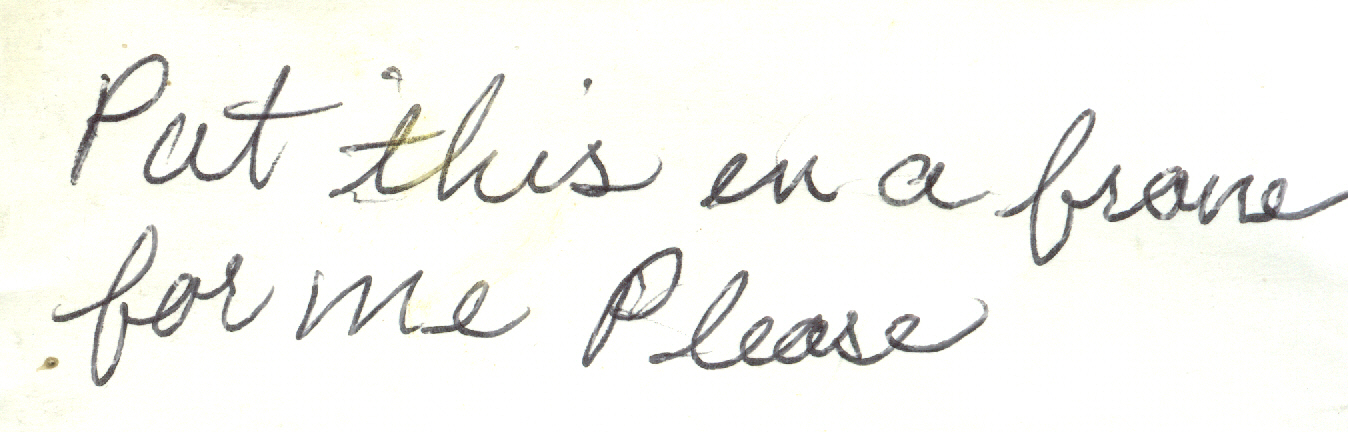 Put this in a frame
for me Please